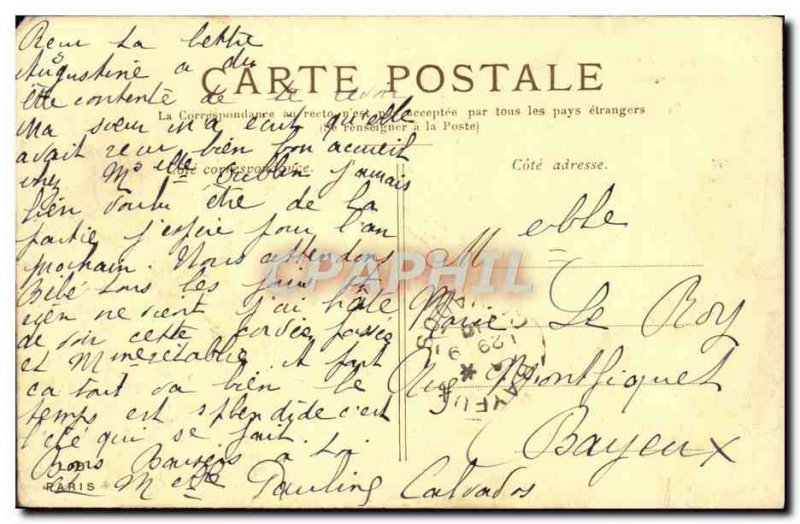 Reçu ta lettre
Augustine a du
être contente de te
CARTE POSTALE
La Correspondance au recto n'est pas acceptée par tous les pays étrangers
(Se renseigner à la Poste)
Côté correspondance.
Côté adresse.
Ma sœur m'a écrit qu'elle
avait reçu bien bon accueil
chez Melle J'aurais
bien voulu être de la
partie j'espère pour l'an
prochain. Nous attendons
Bébé tous les jours et
rien ne vient j'ai hâte
de voir cette corvée passée
et Mme A part
ça tout va bien le
temps est splendide c'est
l'été qui se fait.
Bons Baisers à
Melle Pauline
ND
PARIS
CPAPHIL
Melle
Marie Le Roy
Rue Montfiquet
Bayeux
Calvados
BAYEUX